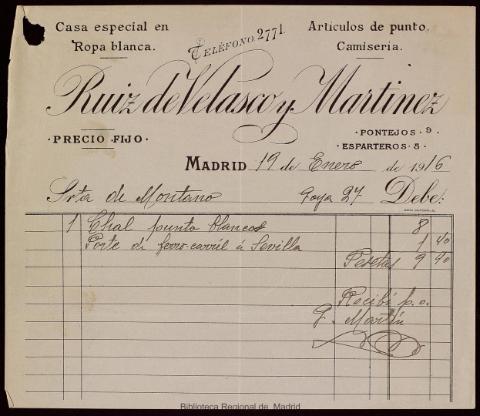 Casa especial en
Ropa blanca.
TELÉFONO 2771
Artículos de punto.
Camisería.
Ruiz de Velasco y Martinez
PRECIO FIJO
PONTEJOS 9
ESPARTEROS 5
MADRID 19 de Enero de 1916
Srta de Montano Goya 27 Debe:
1 Chal punto blanco 8
Porte de ferro-carril á Sevilla 1 40
Pesetas 9 40
Recibí p.o.
G. Martín
Biblioteca Regional de Madrid